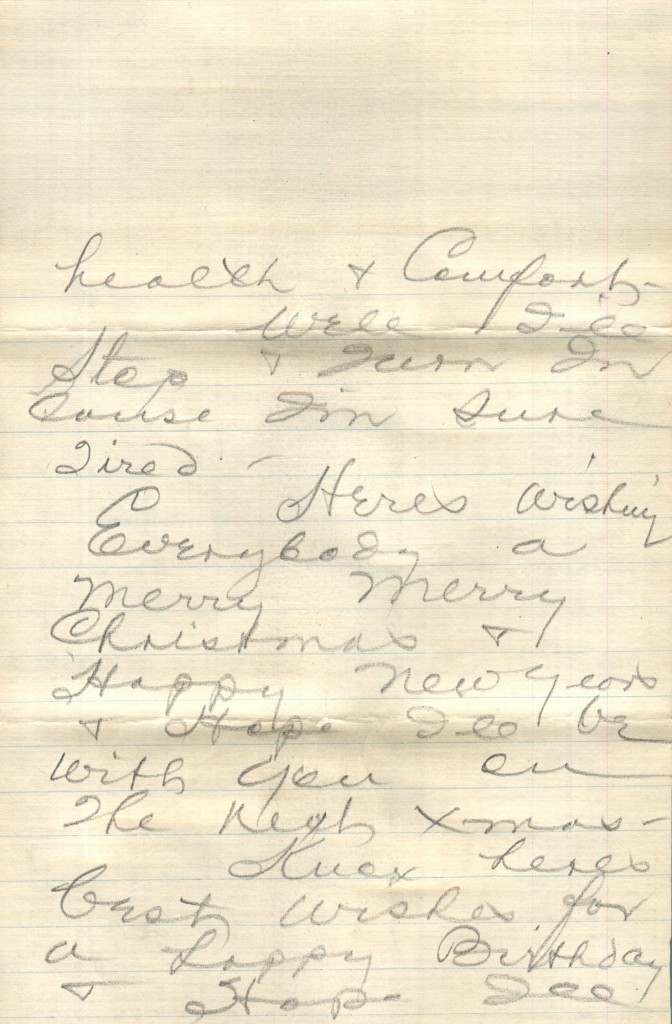 health & Comfort -
Well I'll
Stop & Turn In
Cause I'm sure
Tired -
Heres Wishin'
Everybody a
Merry Merry
Christmas &
Happy New Years
& Hope I'll be
with you on
The Next Xmas -
Knox heres
best wishes for
a happy Birthday
& Hope I'll